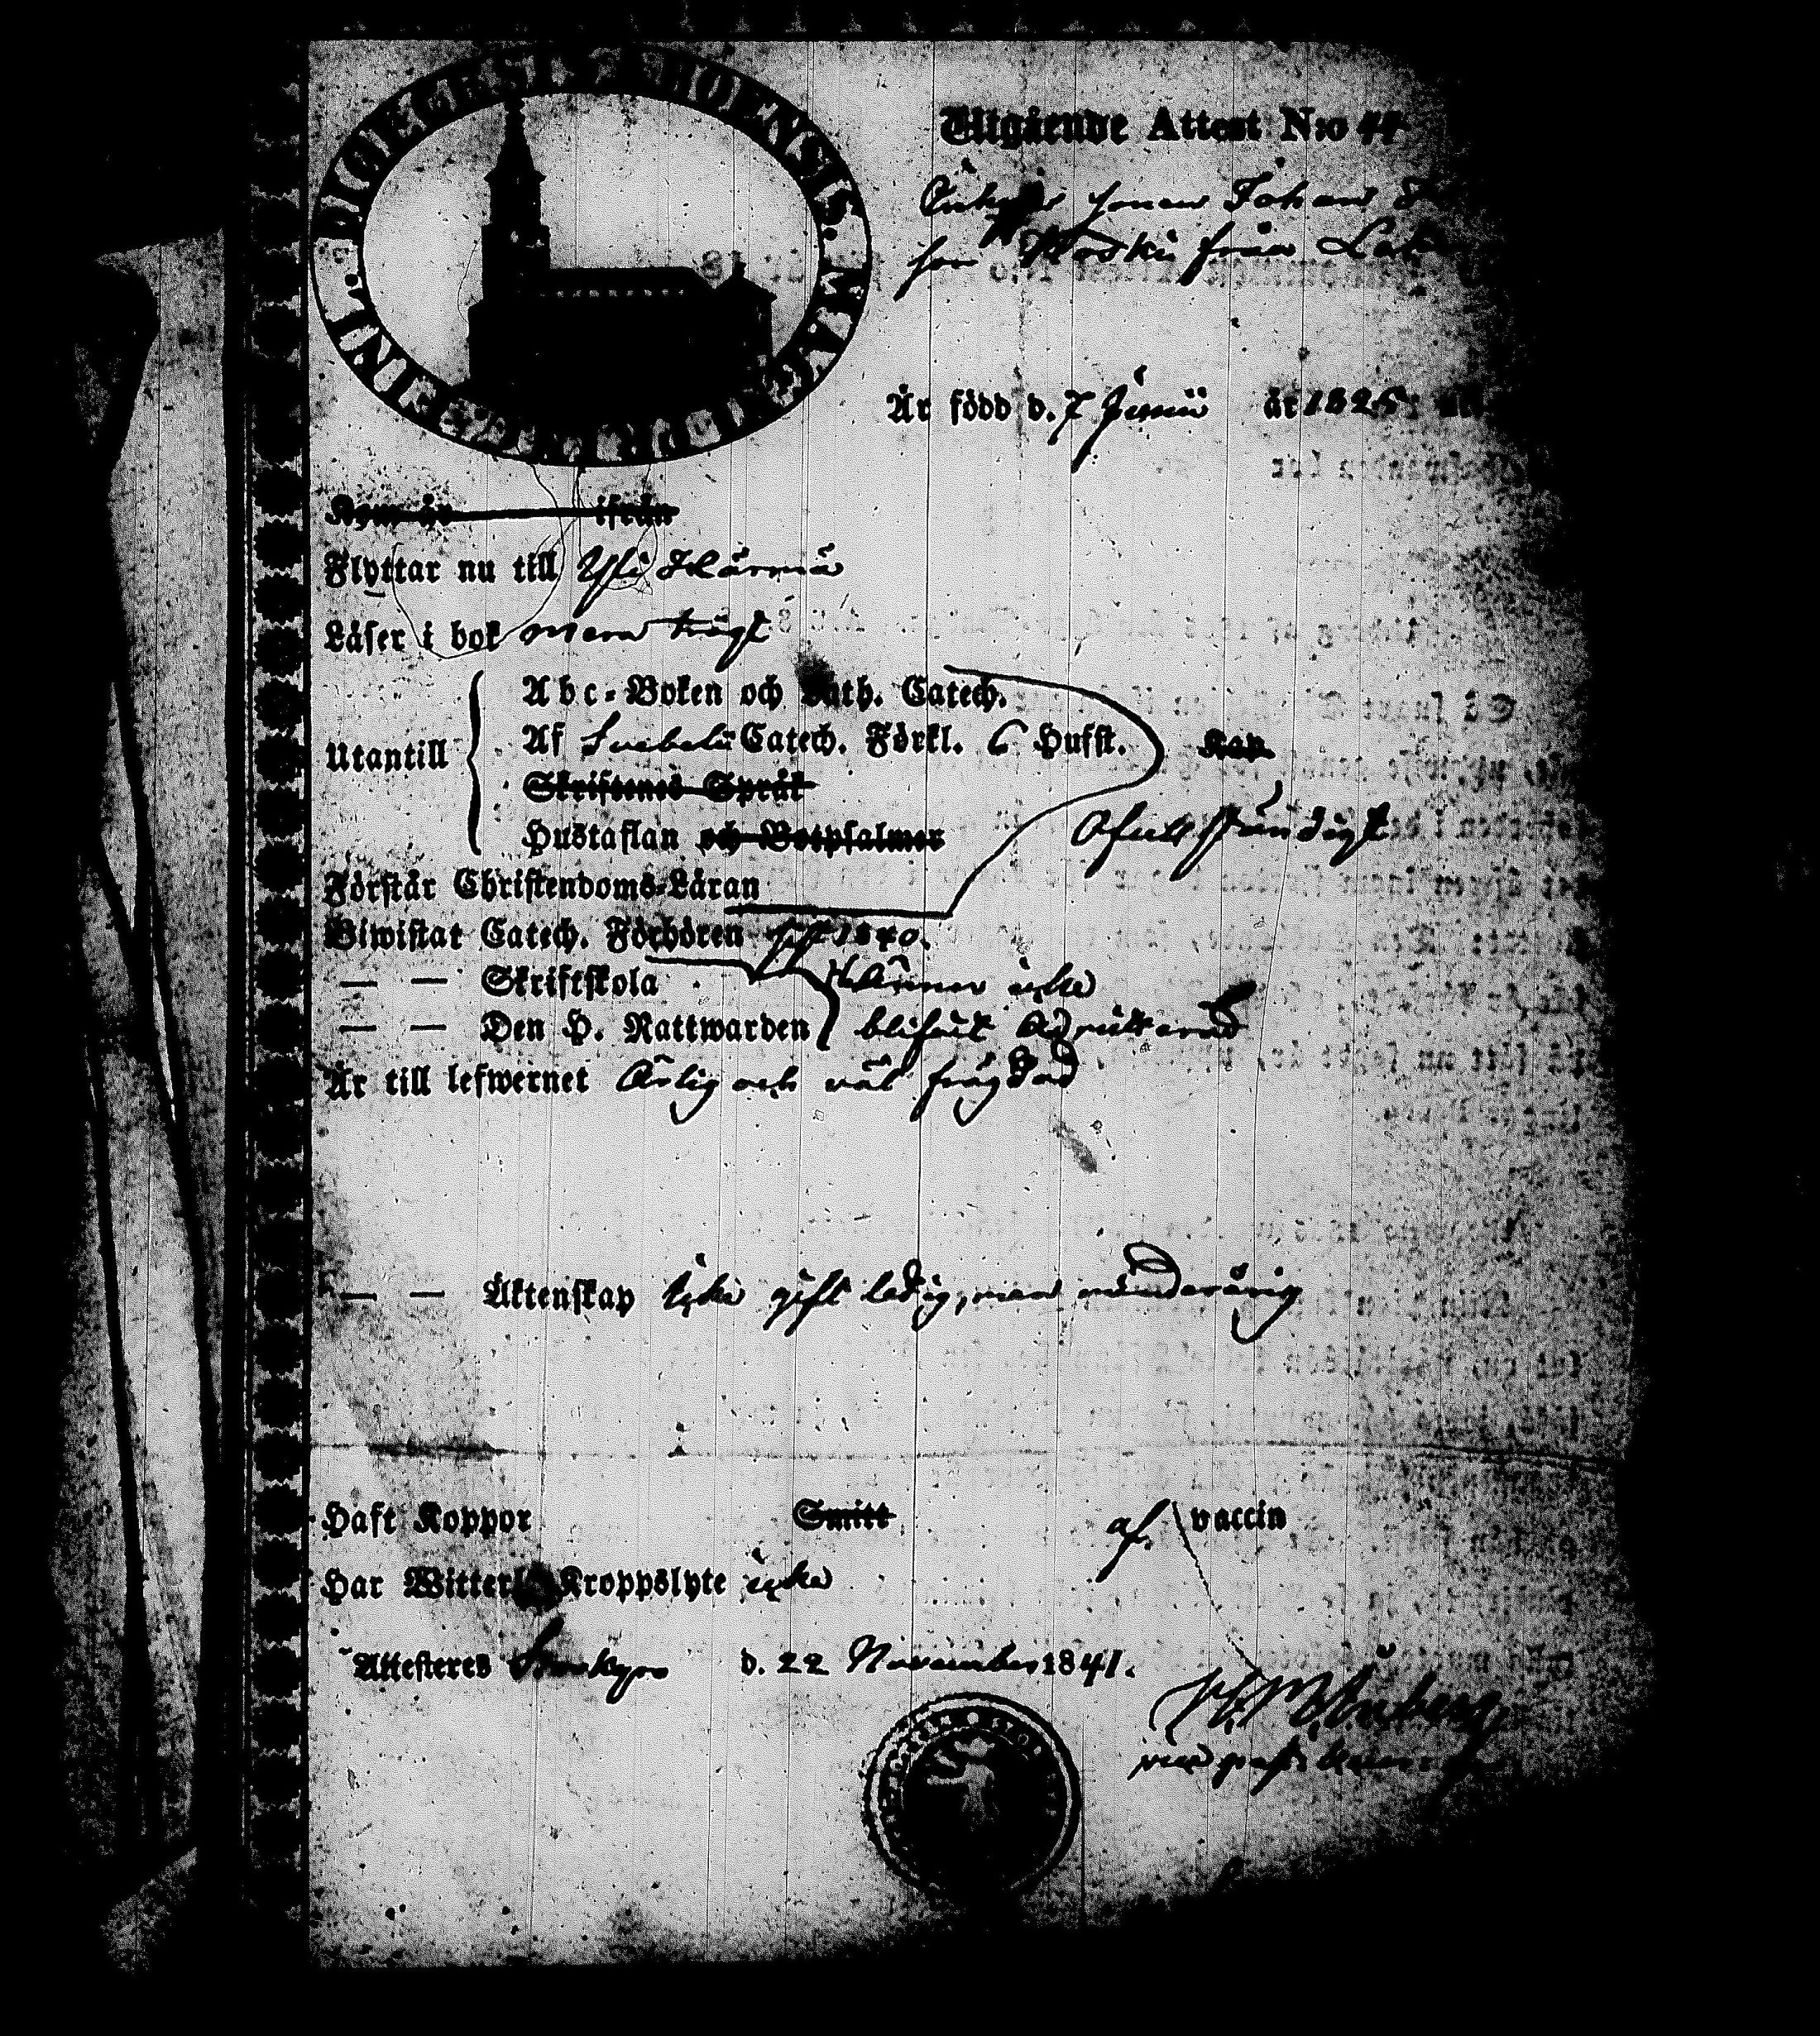 DIOECESIS ABOENSIS. MAGNI PR. FENL.
Utgående Attest N:o 44
Enkans sonen Johan
son Koski från
Är född d. 7 Junii år 1825:
Kom hr ifrån
Flyttar nu till Yli Härmä
Läser i bok mera trögt
Abc-Boken och Luth. Catech.
Utantill Af Svebelii Catech. Förkl. 6 Hufst. Kap
Skriftenes Språk
Hustaflan och Botpsalmer ofullständigt
Förstår Christendoms-Läran
Biwistat Catech. Förhören 1840.
— — Skriftskola ännu icke
— — Den H. Nattwarden blifvit admitterad
Är till lefwernet Ärlig och väl frägdad
— — Äktenskap Icke gift ledig, men minderårig
Haft Koppor Smitt af vaccin
Har Witterl. Kroppslyte icke
Attesteres Storkyro d. 22 November 1841.